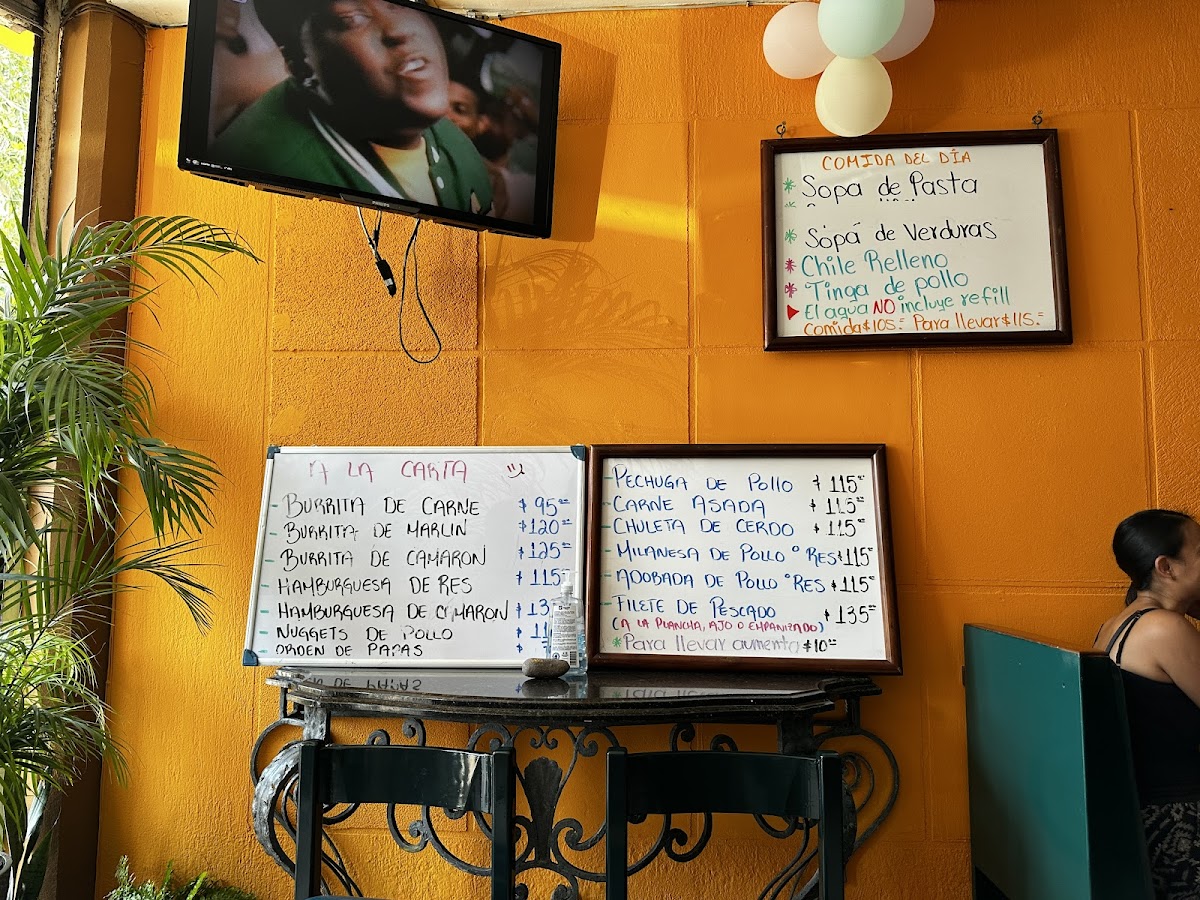 COMIDA DEL DÍA
* Sopa de Pasta
* Sopa de Verduras
* Chile Relleno
* Tinga de pollo
▶ El agua NO incluye refill
Comida $105.= Para llevar $115.=
A LA CARTA
- BURRITA DE CARNE $95.=
- BURRITA DE MARLIN $120.=
- BURRITA DE CAMARON $125.=
- HAMBURGUESA DE RES $115.=
- HAMBURGUESA DE CAMARON
- NUGGETS DE POLLO
- ORDEN DE PAPAS
- PECHUGA DE POLLO $115.=
- CARNE ASADA $115.=
- CHULETA DE CERDO $115.=
- MILANESA DE POLLO ° RES $115.=
- ADOBADA DE POLLO ° RES $115.=
- FILETE DE PESCADO $135.=
(A LA PLANCHA, AJO O EMPANIZADO)
* Para llevar aumenta $10.=
PHILIPS